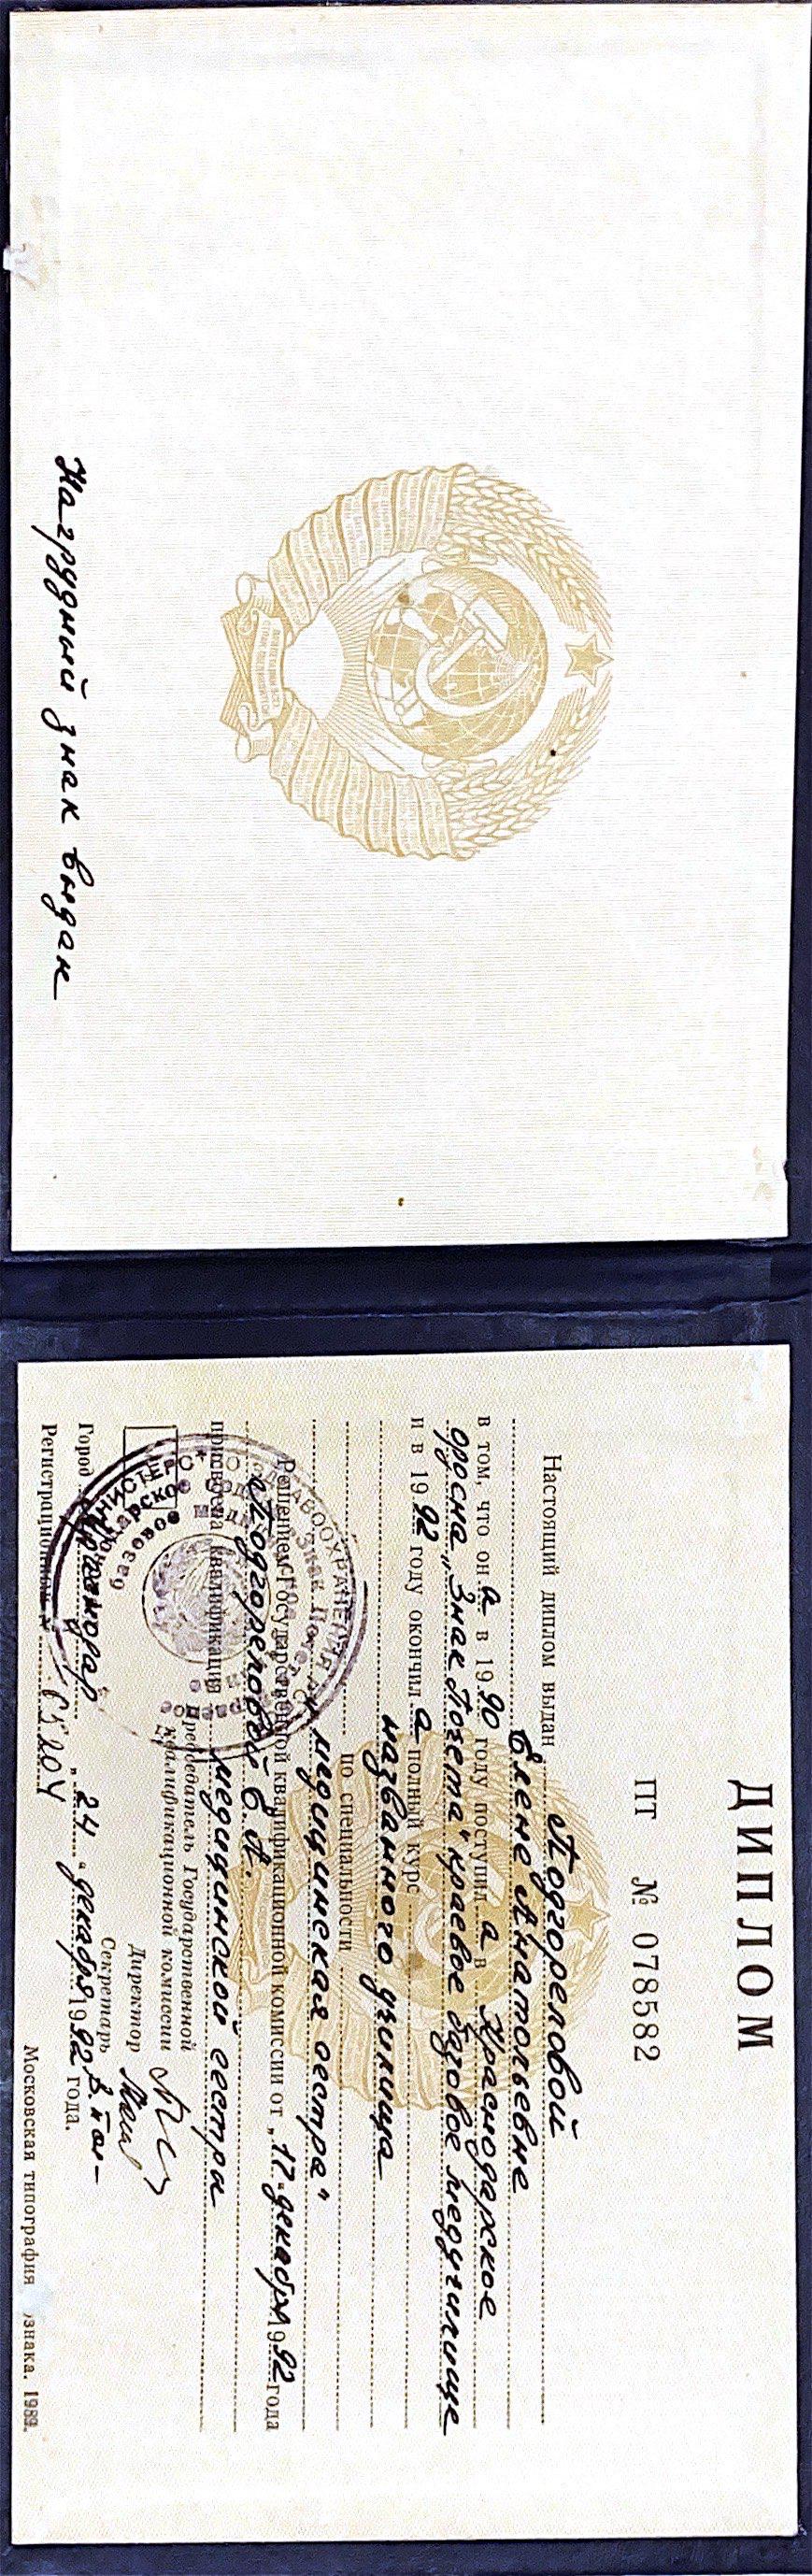 Нагрудный знак выдан
ДИПЛОМ
ПТ № 078582
Настоящий диплом выдан Подгореловой
Елене Анатольевне
в том, что он а в 19 90 году поступил а в Краснодарское
ордена „Знак Почета" краевое базовое медучилище
и в 19 92 году окончил а полный курс
названного училища
по специальности
„медицинская сестра"
Решением Государственной квалификационной комиссии от „17" декабря 19 92 года
Подгореловой Е. А.
присвоена квалификация медицинской сестры
Председатель Государственной
квалификационной комиссии
Директор
Секретарь
Город Краснодар „24" декабря 19 92 года.
Регистрационный № 65204
Московская типография ознака. 1989.